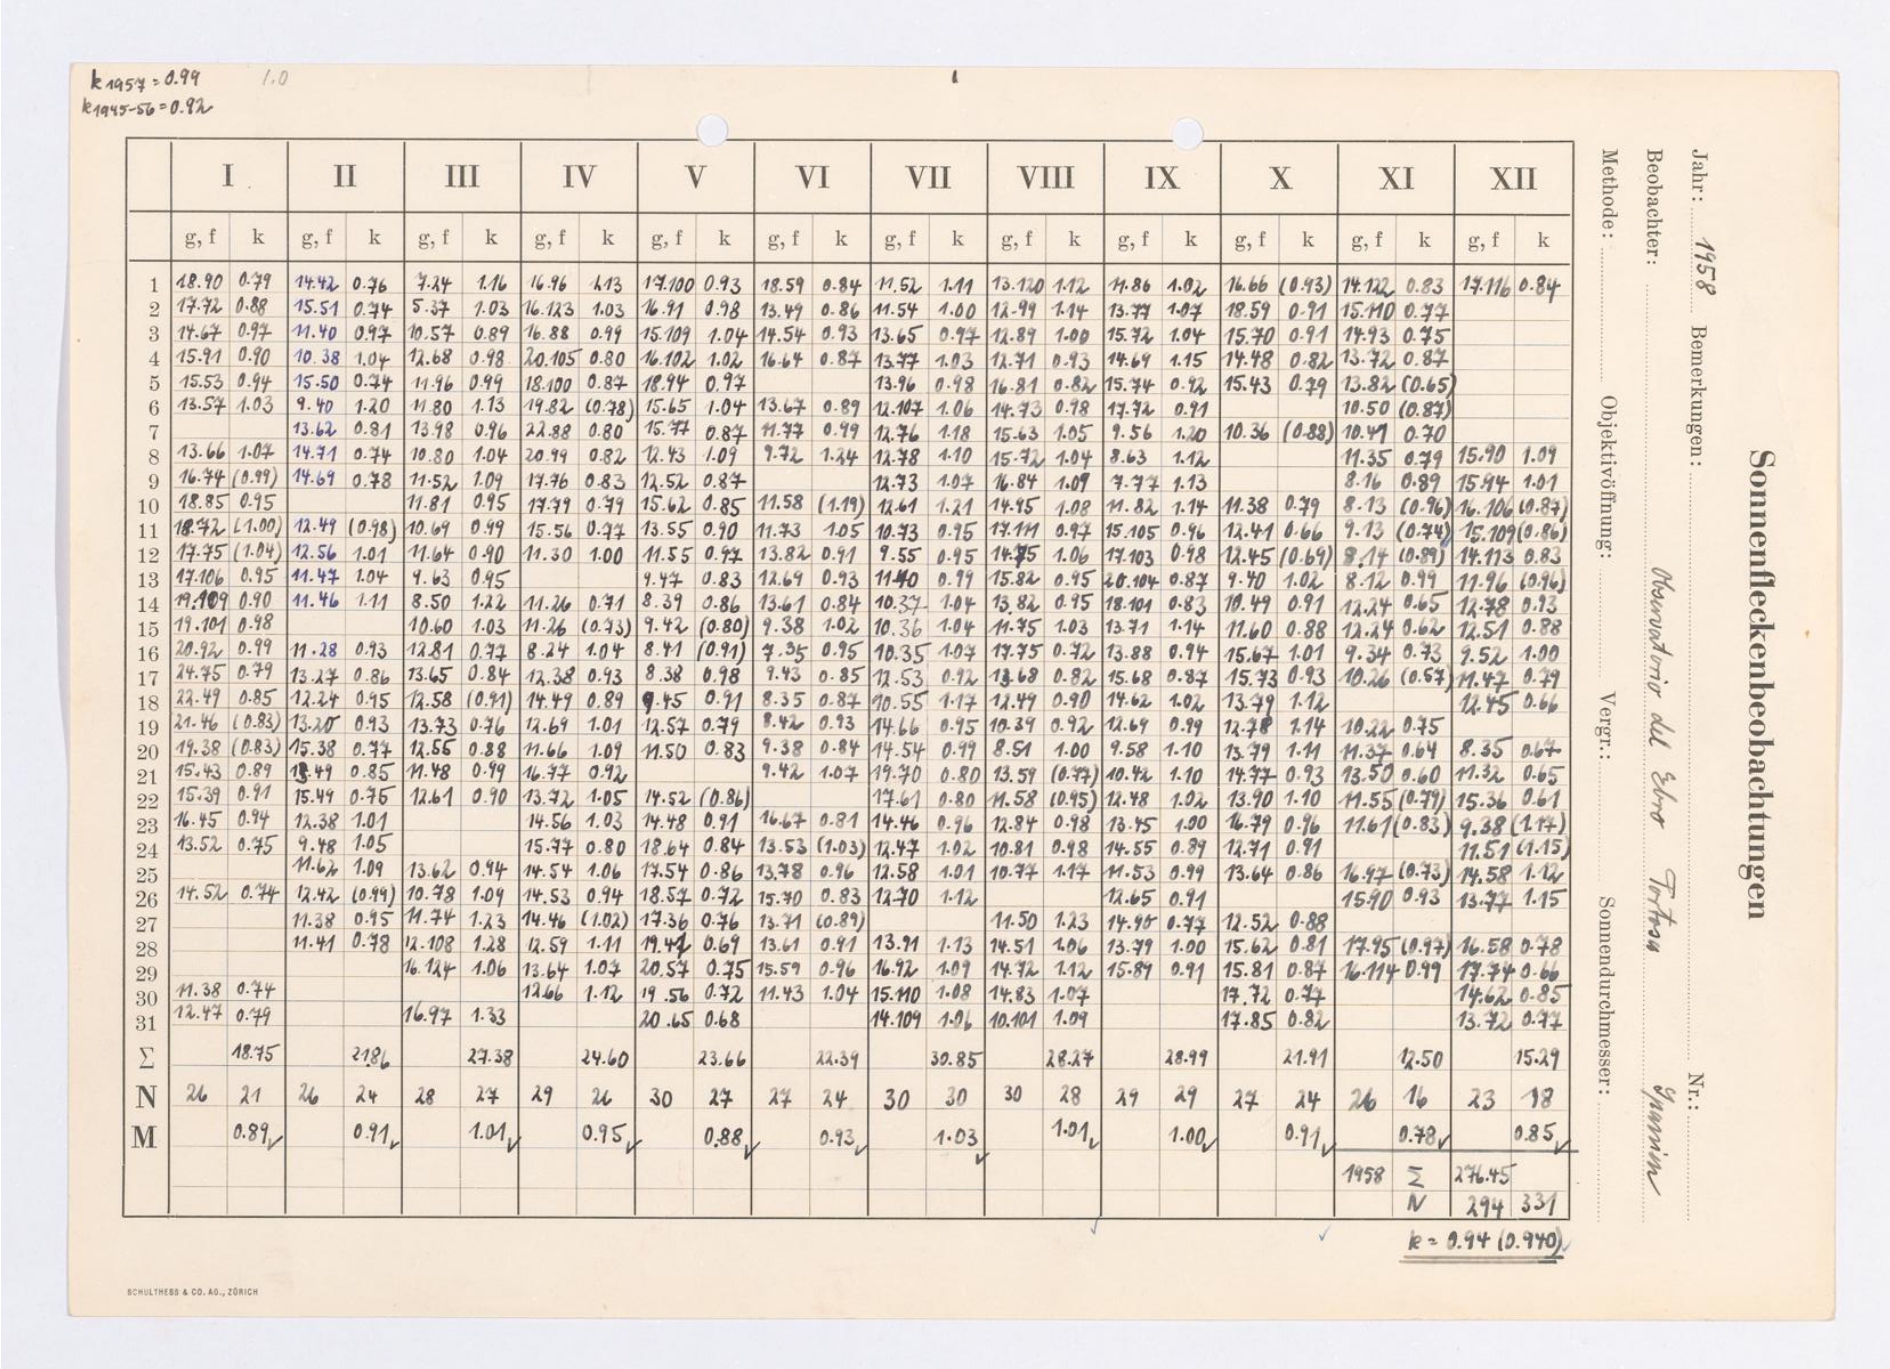 k 1957 = 0.99 1.0
k 1945-56 = 0.92
I II III IV V VI VII VIII IX X XI XII
g, f k g, f k g, f k g, f k g, f k g, f k g, f k g, f k g, f k g, f k g, f k g, f k
1 18.90 0.79 14.42 0.76 7.24 1.16 16.96 1.13 17.100 0.93 18.59 0.84 11.52 1.11 13.120 1.12 11.86 1.02 16.66 (0.93) 14.122 0.83 17.116 0.84
2 17.72 0.88 15.51 0.74 5.37 1.03 16.123 1.03 16.91 0.98 13.49 0.86 11.54 1.00 12.99 1.14 13.77 1.07 18.59 0.91 15.110 0.77
3 14.67 0.97 11.40 0.97 10.57 0.89 16.88 0.99 15.109 1.04 14.54 0.93 13.65 0.97 12.89 1.00 15.72 1.04 15.70 0.91 14.93 0.75
4 15.91 0.90 10.38 1.04 12.68 0.98 20.105 0.80 16.102 1.02 16.64 0.87 13.77 1.03 12.71 0.93 14.69 1.15 14.48 0.82 13.72 0.87
5 15.53 0.94 15.50 0.74 11.96 0.99 18.100 0.87 18.94 0.97 13.96 0.98 16.81 0.82 15.74 0.92 15.43 0.79 13.82 (0.65)
6 13.57 1.03 9.40 1.20 11.80 1.13 19.82 (0.78) 15.65 1.04 13.67 0.89 12.107 1.06 14.73 0.98 17.72 0.91 10.50 (0.87)
7 13.62 0.81 13.98 0.96 22.88 0.80 15.77 0.87 11.77 0.99 12.76 1.18 15.63 1.05 9.56 1.20 10.36 (0.88) 10.41 0.70
8 13.66 1.07 14.71 0.74 10.80 1.04 20.99 0.82 12.43 1.09 9.72 1.24 12.78 1.10 15.72 1.04 8.63 1.12 11.35 0.79 15.90 1.09
9 16.74 (0.99) 14.69 0.78 11.52 1.09 17.76 0.83 12.52 0.87 12.73 1.07 16.84 1.09 7.77 1.13 8.16 0.89 15.94 1.01
10 18.85 0.95 11.81 0.95 17.79 0.79 15.62 0.85 11.58 (1.19) 12.61 1.21 14.95 1.08 11.82 1.14 11.38 0.79 8.13 (0.96) 16.106 (0.87)
11 18.72 (1.00) 12.49 (0.98) 10.69 0.99 15.56 0.77 13.55 0.90 11.73 1.05 10.73 0.95 17.111 0.97 15.105 0.96 12.41 0.66 9.13 (0.74) 15.109 (0.86)
12 17.75 (1.04) 12.56 1.01 11.64 0.90 11.30 1.00 11.55 0.97 13.82 0.91 9.55 0.95 14.75 1.06 17.103 0.98 12.45 (0.69) 8.14 (0.89) 14.113 0.83
13 17.106 0.95 11.47 1.04 9.63 0.95 9.47 0.83 12.69 0.93 11.40 0.99 15.82 0.95 20.104 0.87 9.40 1.02 8.12 0.99 11.96 (0.96)
14 19.109 0.90 11.46 1.11 8.50 1.22 11.26 0.71 8.39 0.86 13.61 0.84 10.37 1.04 13.82 0.95 18.101 0.83 10.49 0.91 12.24 0.65 12.78 0.93
15 19.101 0.98 10.60 1.03 11.26 (0.73) 9.42 (0.80) 9.38 1.02 10.36 1.04 11.75 1.03 13.71 1.14 11.60 0.88 12.24 0.62 12.51 0.88
16 20.92 0.99 11.28 0.93 12.81 0.77 8.24 1.04 8.41 (0.91) 7.35 0.95 10.35 1.07 17.75 0.72 13.88 0.94 15.67 1.01 9.34 0.73 9.52 1.00
17 24.75 0.79 13.27 0.86 13.65 0.84 12.38 0.93 8.38 0.98 9.43 0.85 12.53 0.92 13.68 0.82 15.68 0.87 15.73 0.93 10.26 (0.57) 11.47 0.79
18 22.49 0.85 12.24 0.95 12.58 (0.91) 14.49 0.89 9.45 0.91 8.35 0.87 10.55 1.17 12.49 0.90 14.62 1.02 13.79 1.12 12.45 0.66
19 21.46 (0.83) 13.20 0.93 13.73 0.76 12.69 1.01 12.57 0.79 8.42 0.93 14.66 0.95 10.39 0.92 12.69 0.99 12.78 1.14 10.22 0.75
20 19.38 (0.83) 15.38 0.77 12.55 0.88 11.66 1.09 11.50 0.83 9.38 0.84 14.54 0.99 8.51 1.00 9.58 1.10 13.79 1.11 11.37 0.64 8.35 0.67
21 15.43 0.89 13.49 0.85 11.48 0.99 16.77 0.92 9.42 1.07 19.70 0.80 13.59 (0.77) 10.42 1.10 14.77 0.93 13.50 0.60 11.32 0.65
22 15.39 0.91 15.49 0.75 12.61 0.90 13.72 1.05 14.52 (0.86) 17.61 0.80 11.58 (0.95) 12.48 1.02 13.90 1.10 11.55 (0.79) 15.36 0.61
23 16.45 0.94 12.38 1.01 14.56 1.03 14.48 0.91 16.67 0.81 14.46 0.96 12.84 0.98 13.45 1.00 16.79 0.96 11.61 (0.83) 9.38 (1.17)
24 13.52 0.75 9.48 1.05 15.77 0.80 18.64 0.84 13.53 (1.03) 12.47 1.02 10.81 0.98 14.55 0.89 12.71 0.91 11.51 (1.15)
25 11.62 1.09 13.62 0.94 14.54 1.06 17.54 0.86 13.78 0.96 12.58 1.01 10.77 1.17 11.53 0.99 13.64 0.86 16.97 (0.73) 14.58 1.12
26 14.52 0.74 12.42 (0.99) 10.78 1.09 14.53 0.94 18.57 0.72 15.70 0.83 12.70 1.12 12.65 0.91 15.90 0.93 13.77 1.15
27 11.38 0.95 11.74 1.23 14.46 (1.02) 17.36 0.76 13.71 (0.89) 11.50 1.23 14.95 0.77 12.52 0.88
28 11.41 0.78 12.108 1.28 12.59 1.11 19.41 0.69 13.61 0.91 13.91 1.13 14.51 1.06 13.79 1.00 15.62 0.81 17.95 (0.97) 16.58 0.78
29 16.124 1.06 13.64 1.07 20.57 0.75 15.59 0.96 16.92 1.09 14.72 1.12 15.89 0.91 15.81 0.87 16.114 0.99 17.74 0.66
30 11.38 0.74 12.66 1.12 19.56 0.72 11.43 1.04 15.110 1.08 14.83 1.07 17.72 0.77 14.62 0.85
31 12.47 0.79 16.97 1.33 20.65 0.68 14.109 1.06 10.101 1.09 17.85 0.82 13.72 0.77
Σ 18.75 21.86 27.38 24.60 23.66 22.39 30.85 28.27 28.99 21.91 12.50 15.29
N 26 21 26 24 28 27 29 26 30 27 27 24 30 30 30 28 29 29 27 24 26 16 23 18
M 0.89 0.91 1.01 0.95 0.88 0.93 1.03 1.01 1.00 0.91 0.78 0.85
1958 Σ 276.45
N 294 331
k = 0.94 (0.940)
SCHULTHESS & CO. AG., ZÜRICH
Sonnenfleckenbeobachtungen
Jahr: 1958 Bemerkungen: Nr.:
Beobachter: Observatorio del Ebro Tortosa
Methode: Objektivöffnung: Vergr.: Sonnendurchmesser: